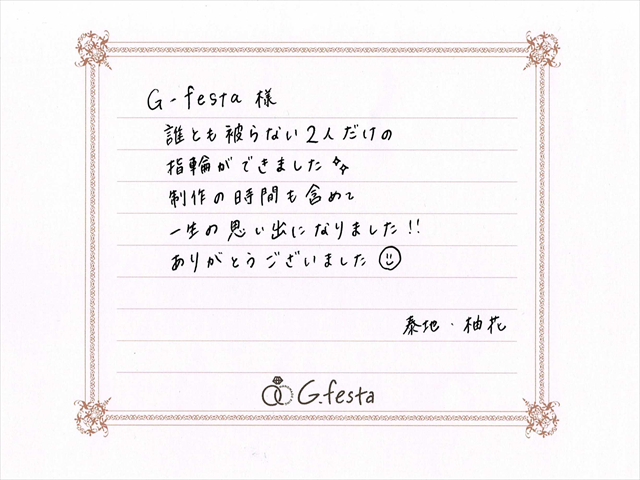 G-festa 様
誰とも被らない2人だけの
指輪ができました✨
制作の時間も含めて
一生の思い出になりました!!
ありがとうございました☺
泰地・柚花
G.festa